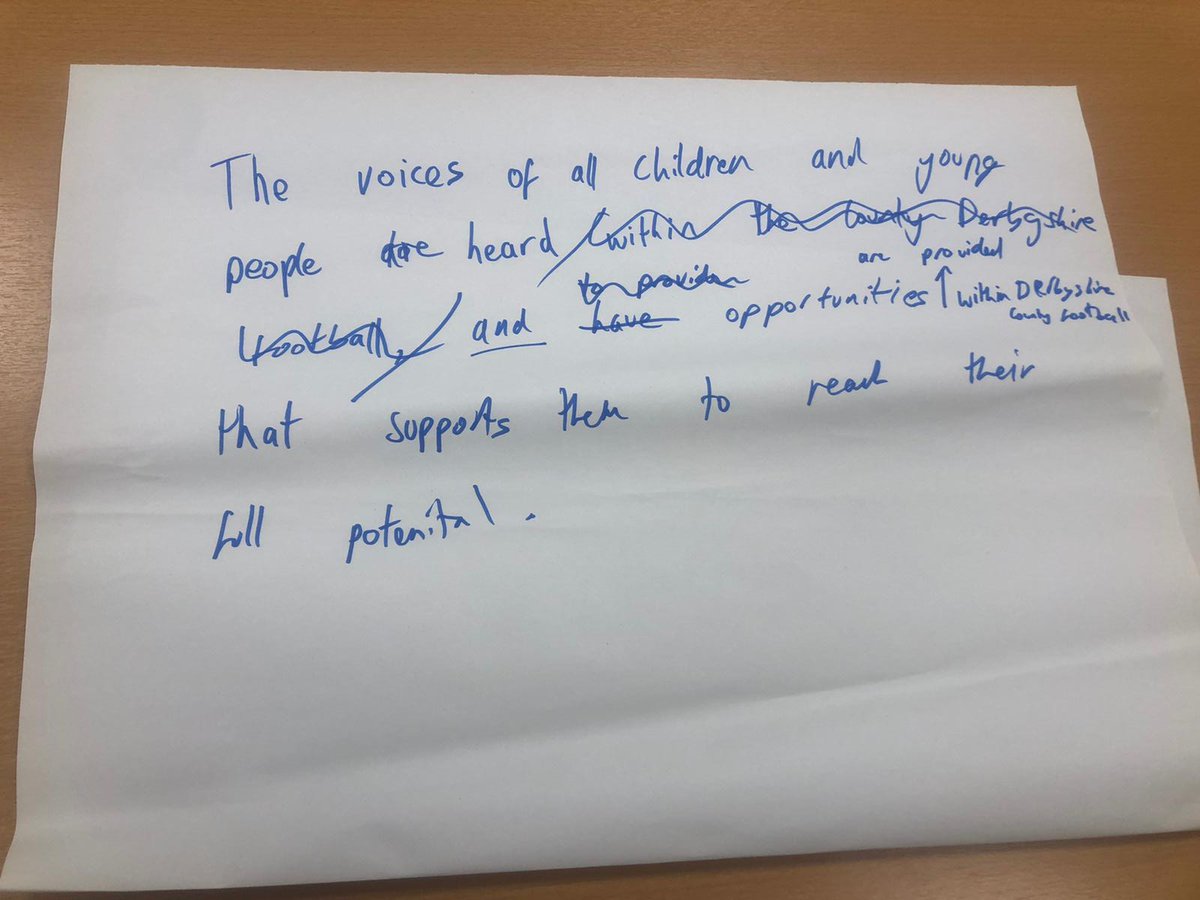 The voices of all children and young
people are heard within the County Derbyshire
to provide are provided
football, and have opportunities within Derbyshire
County Football
that supports them to reach their
full potenital.